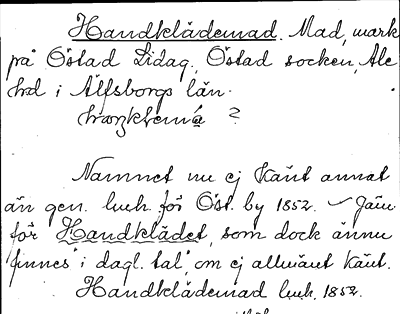 Handklädemad. Mad, mark
på Östad Lidaq, Östad socken, Ale
hd i Älfsborgs län.
?
Namnet nu ej känt annat
än gen. luh. för Öst. by 1852. Jäm
för Handklädet, som dock ännu
finnes i dagl. tal, om ej allmänt känt.
Handklädemad luh. 1852.